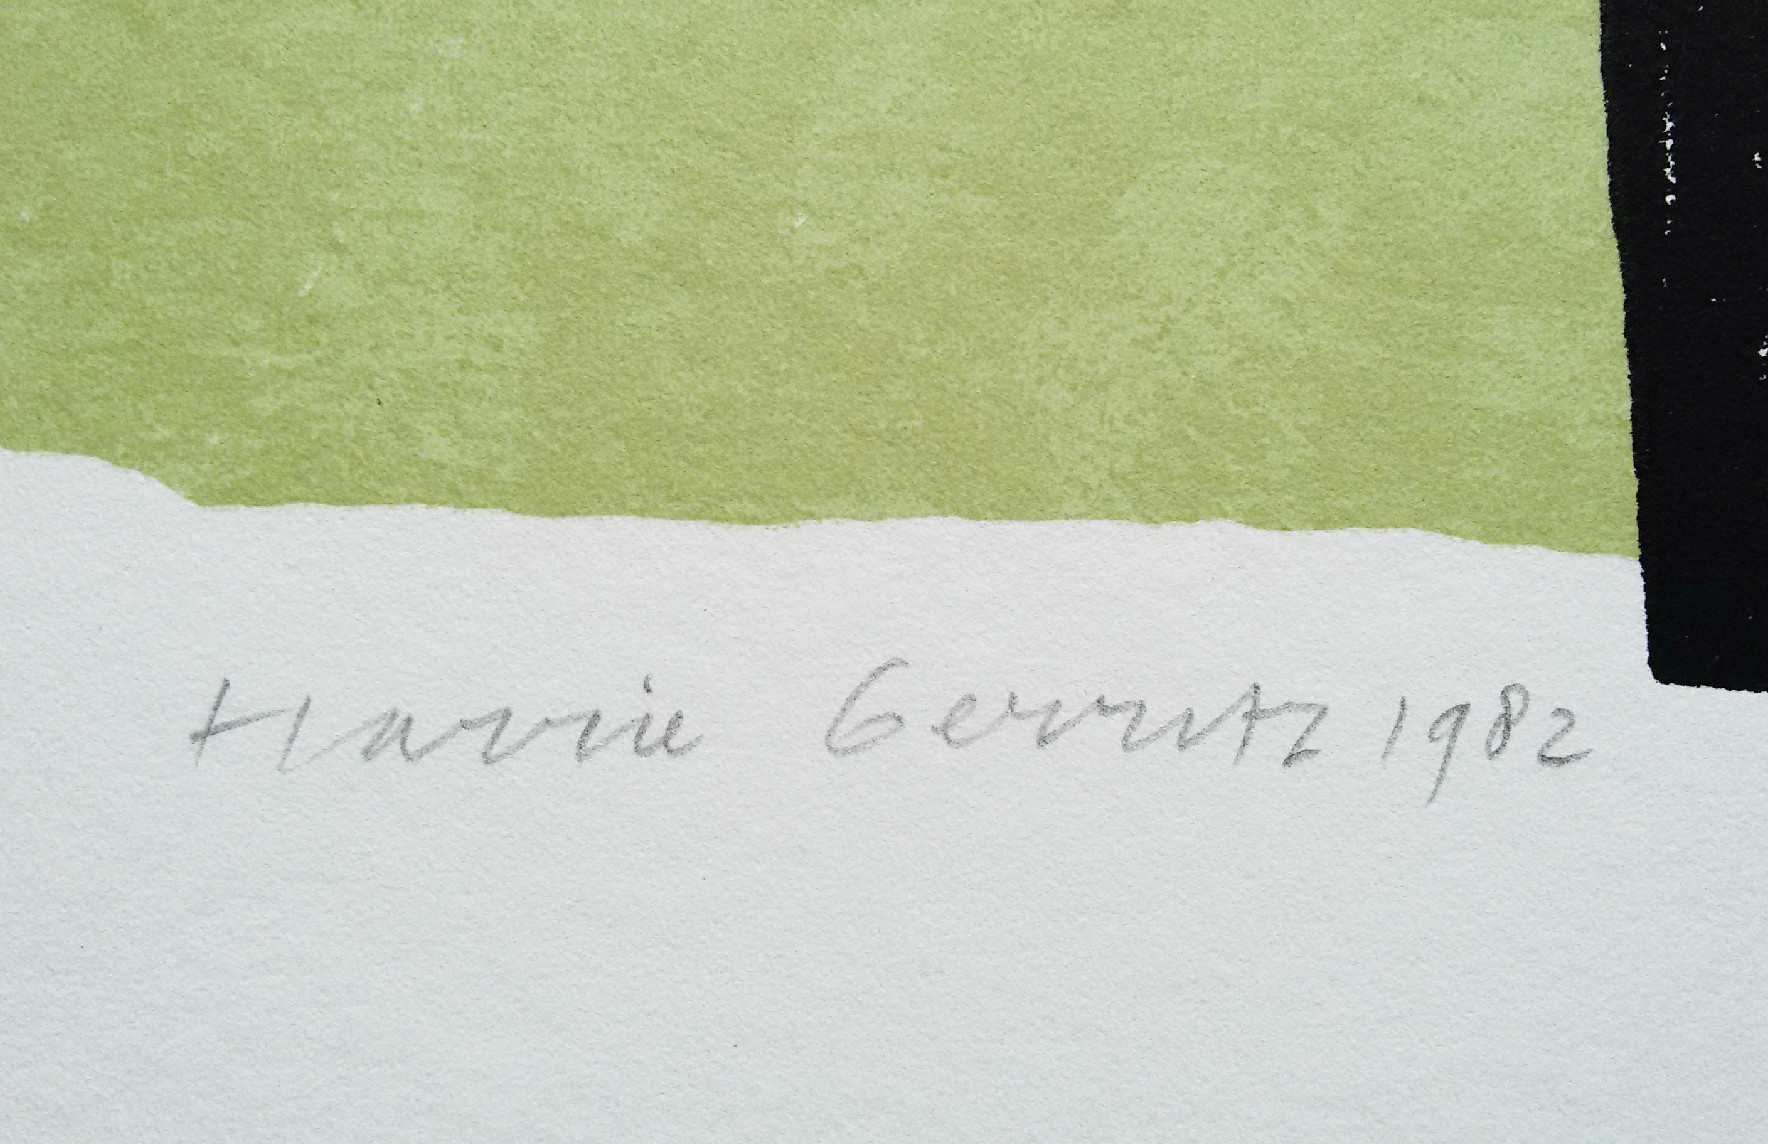 Harrie Gerritz 1982